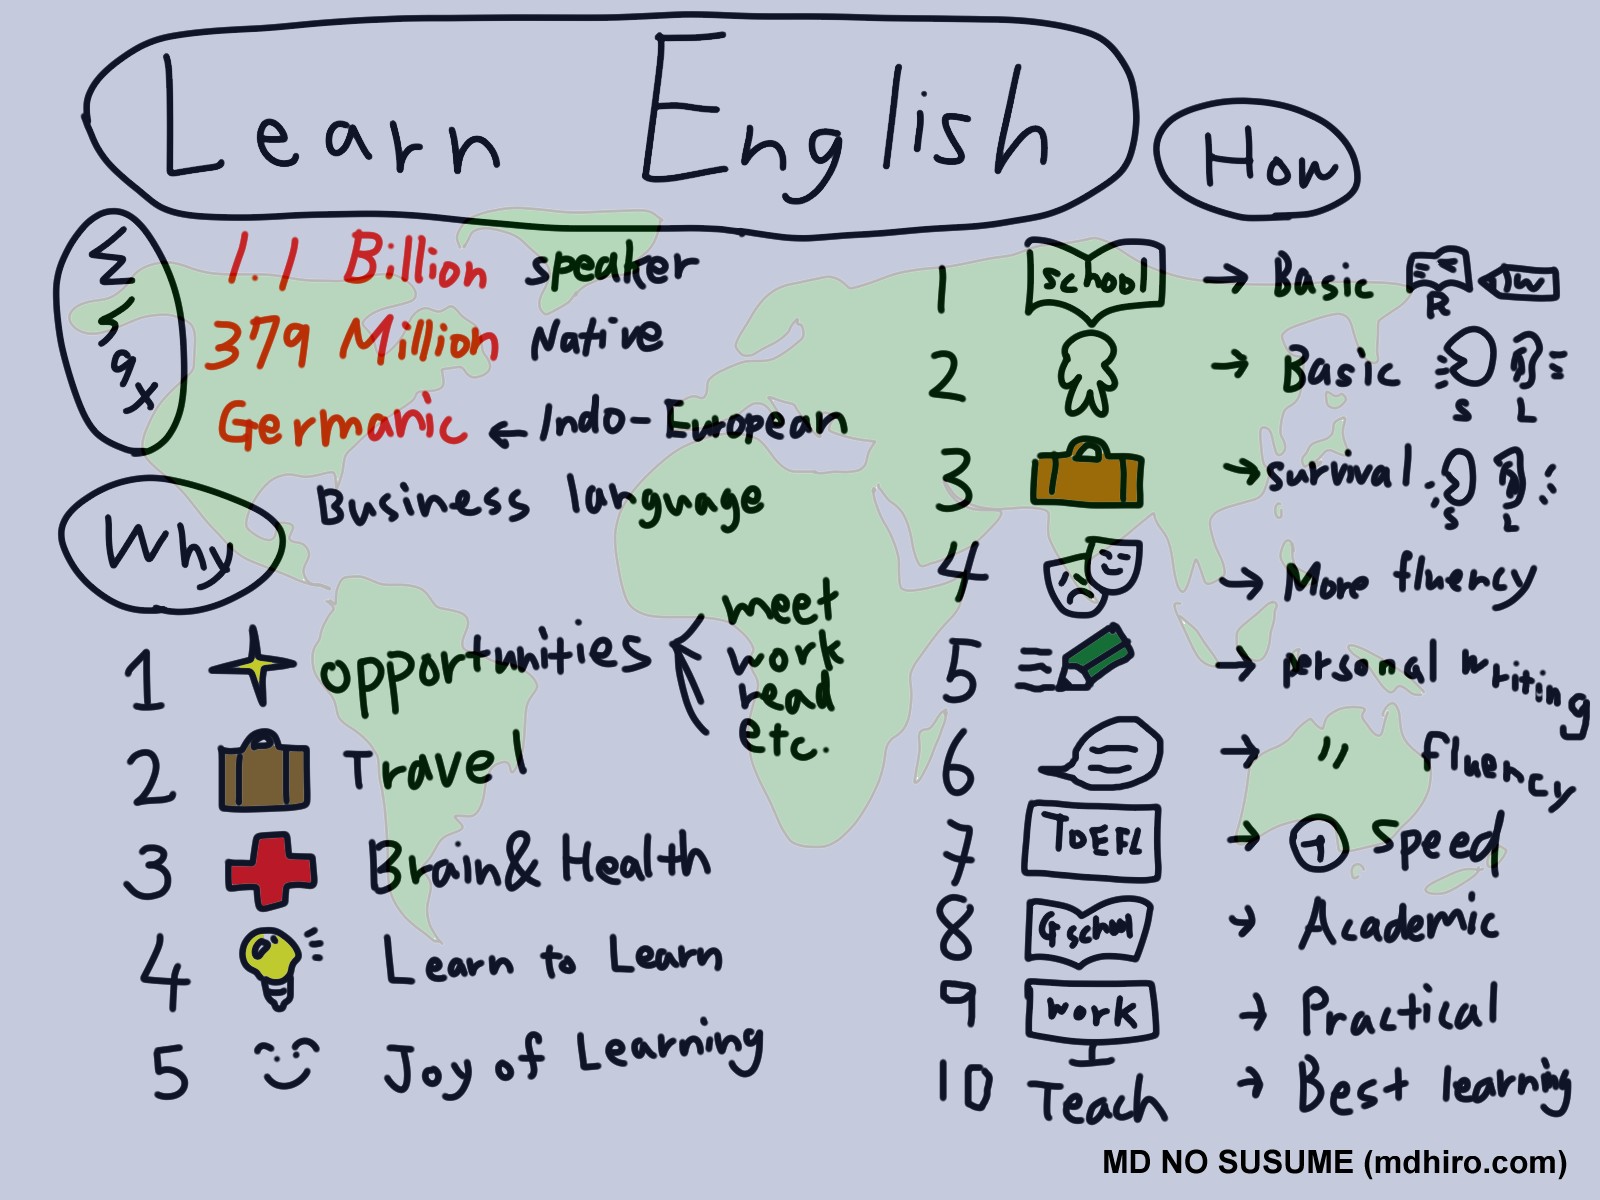 Learn English
1.1 Billion speaker
379 Million Native
Germanic ← Indo-European
Business language
Why
1 opportunities
meet
work
read
etc.
2 Travel
3 Brain & Health
4 Learn to Learn
5 Joy of Learning
How
1 school → Basic R W
2 → Basic S L
3 → survival S L
4 → More fluency
5 → personal writing
6 → 〃 fluency
7 TOEFL → + Speed
8 G school → Academic
9 work → Practical
10 Teach → Best learning
MD NO SUSUME (mdhiro.com)